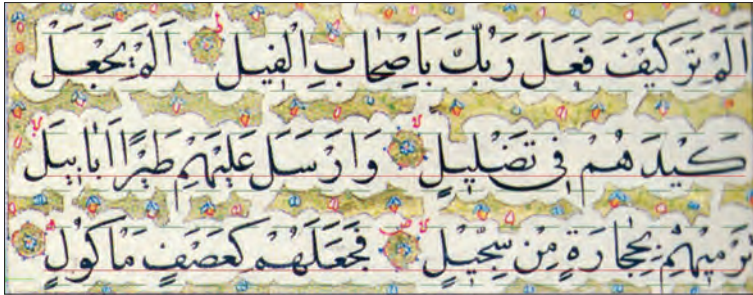 اَلَمْ تَرَ كَيْفَ فَعَلَ رَبُّكَ بِاَصْحَابِ الْفِيلِ اَلَمْ يَجْعَلْ
كَيْدَهُمْ فِى تَضْلِيلٍ وَاَرْسَلَ عَلَيْهِمْ طَيْرًا اَبَابِيلَ
تَرْمِيهِمْ بِحِجَارَةٍ مِنْ سِجِّيلٍ فَجَعَلَهُمْ كَعَصْفٍ مَاْكُولٍ